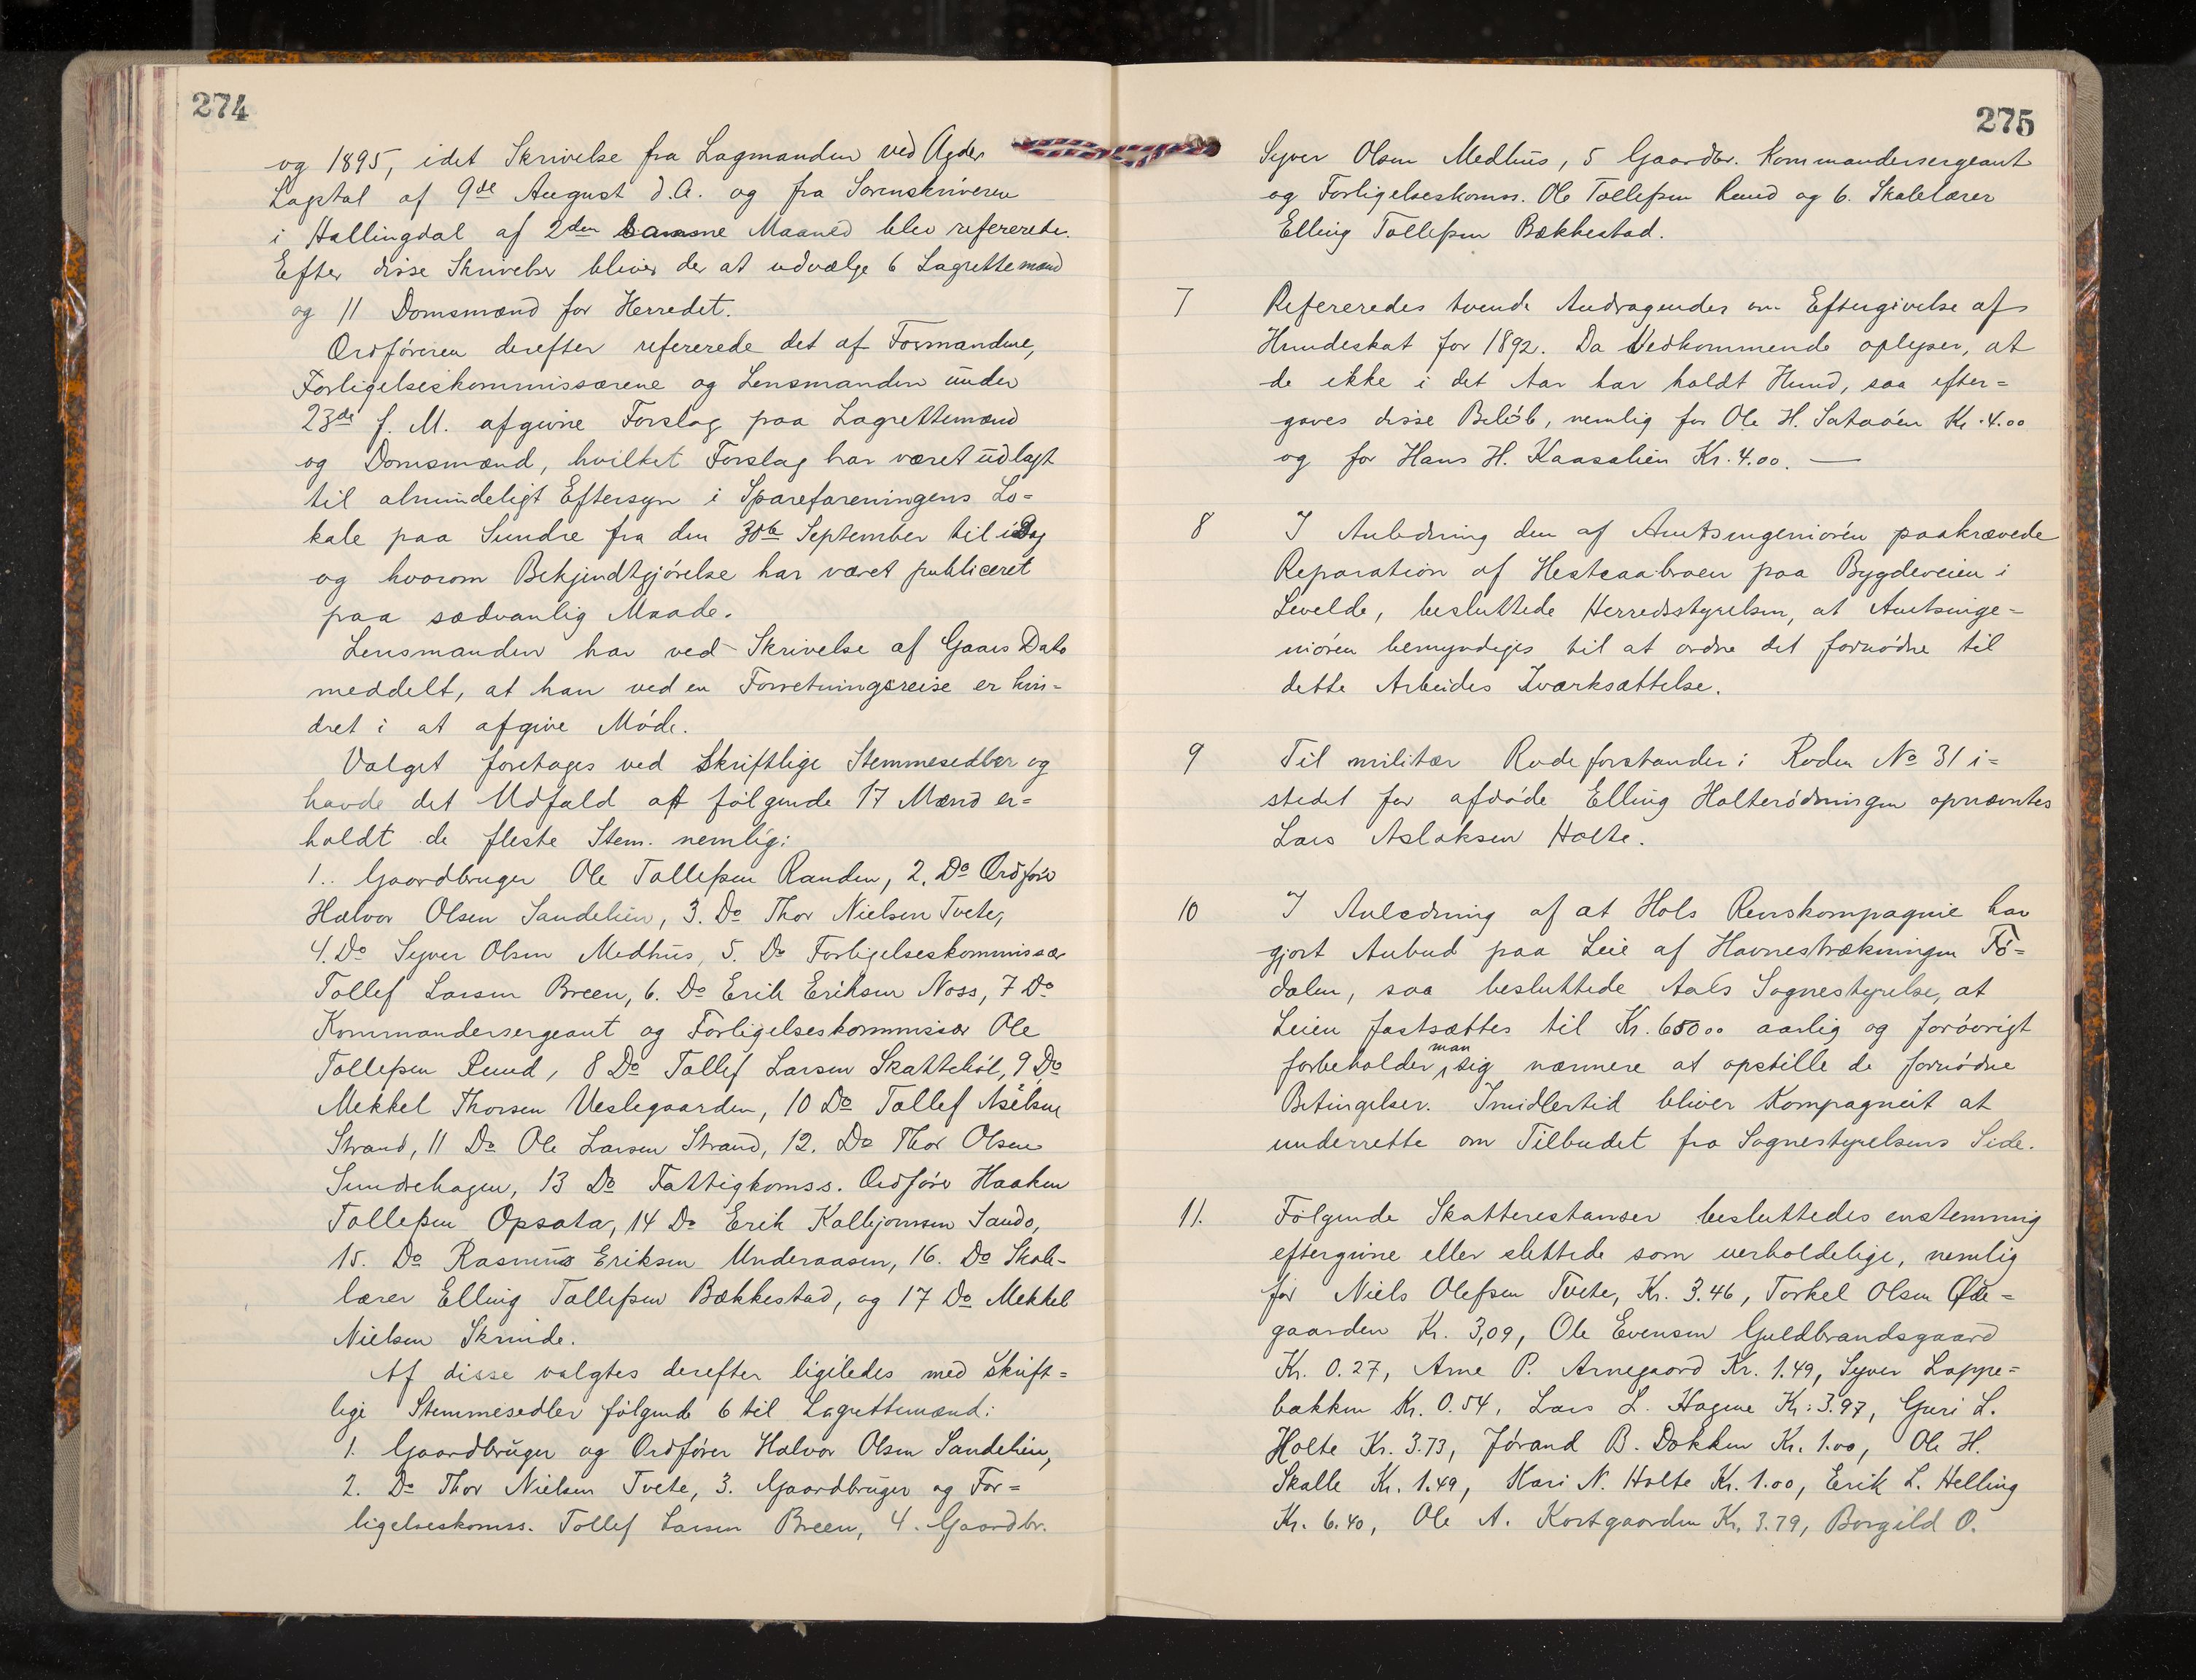 274
og 1895, idet Skrivelse fra Lagmanden ved Agder
Lagstol af 9de August d.A. og fra Sorenskriveren
i Hallingdal af 2den samme Maaned blev refererede.
Efter disse Skrivelser bliver der at udvælge 6 Lagrettemænd
og 11 Domsmænd for Herredet.
Ordføreren derefter refererede det af Formandene,
Forligelseskommissærene og Lensmanden under
23de f. M. afgivne Forslag paa Lagrettemænd
og Domsmænd, hvilket Forslag har været udlagt
til almindeligt Eftersyn i Spareforeningens Lo=
kale paa Sundre fra den 30te September til idag
og hvorom Bekjendtgjørelse har været publiceret
paa sædvanlig Maade.
Lensmanden har ved Skrivelse af Gaars Dato
meddelt, at han ved en Forretningsreise er hin=
dret i at afgive Møde.
Valget foretages ved Skriftlige Stemmesedler og
havde det Udfald at følgende 17 Mænd er=
holdt de fleste Stem. nemlig:
1.. Gaardbruger Ole Tollefsen Randen, 2. Do Ordfører
Halvor Olsen Sandelien, 3. Do Thor Nielsen Tvete,
4. Do Syver Olsen Medhus, 5. Do Forligelseskommissær
Tollef Larsen Breen, 6. Do Erik Eriksen Noss, 7 Do
Kommandersergeant og Forligelseskommissær Ole
Tollefsen Ruud, 8 Do Tollef Larsen Skattebøl, 9 Do
Mekkel Thorsen Veslegaarden, 10 Do Tollef Nilsen
Strand, 11 Do Ole Larsen Strand, 12. Do Thor Olsen
Sundrehagen, 13 Do Fattigkomss. Ordfører Haaken
Tollefsen Opsata, 14 Do Erik Kolbjørnsen Sando,
15. Do Rasmus Eriksen Underaasen, 16. Do Skole-
lærer Elling Tollefsen Bækkestad, og 17 Do Mekkel
Nielsen Skrinde.
Af disse valgtes derefter ligeledes med skrift=
lige Stemmesedler følgende 6 til Lagrettemænd:
1. Gaardbruger og Ordfører Halvor Olsen Sandelien,
2. Do Thor Nielsen Tvete, 3. Gaardbruger og For=
ligelseskomss. Tollef Larsen Breen, 4. Gaardbr.
275
Syver Olsen Medhus, 5 Gaardbr. Kommandersergeant
og Forligelseskomss. Ole Tollefsen Ruud og 6. Skolelærer
Elling Tollefsen Bækkestad.
7 Refereredes tvende Andragender om Eftergivelse af
Hundeskat for 1892. Da Vedkommende oplyser, at
de ikke i det Aar har holdt Hund, saa efter=
gaves disse Beløb, nemlig for Ole H. Sataøen Kr. 4.00
og for Hans H. Kaasalien Kr. 4.00. —
8 I Anledning den af Amtsingeniøren paakrævede
Reparation af Hestsaabroen paa Bygdeveien i
Levelde, besluttede Herredsstyrelsen, at Amtsinge=
niøren bemyndiges til at ordne det fornødne til
dette Arbeides Iværksættelse.
9 Til militær Rodeforstander i Roden No 31 i=
stedet for afdøde Elling Holterødningen opnævntes
Lars Aslaksen Holte.
10 I Anledning af at Hols Renskompagnie har
gjort Anbud paa Leie af Havnestrækningen Fø=
dalen, saa besluttede Aals Sognestyrelse, at
Leien fastsættes til Kr. 650 00 aarlig og forøvrigt
forbeholder man sig nærmere at opstille de fornødne
Betingelser. Imidlertid bliver Kompagniet at
underrette om Tilbudet fra Sognestyrelsens Side.
11. Følgende Skatterestanser besluttedes enstemmig
eftergivne eller slettede som uerholdelige, nemlig
for Niels Olefsen Tvete, Kr. 3.46, Torkel Olsen Øde=
gaarden Kr. 3,09, Ole Evensen Guldbrandsgaard
Kr. 0.27, Arne P. Arnegaard Kr. 1.49, Syver Lappe=
bakken Kr. 0.54, Lars L. Hagene Kr: 3.97, Guri L.
Holte Kr. 3.73, Jørand B. Dokken Kr. 1.00, Ole H.
Skalle Kr. 1.49, Kari N. Holte Kr. 1.00, Erik L. Helling
Kr. 6.40, Ole A. Kortgaarden Kr. 3.79, Borgild O.